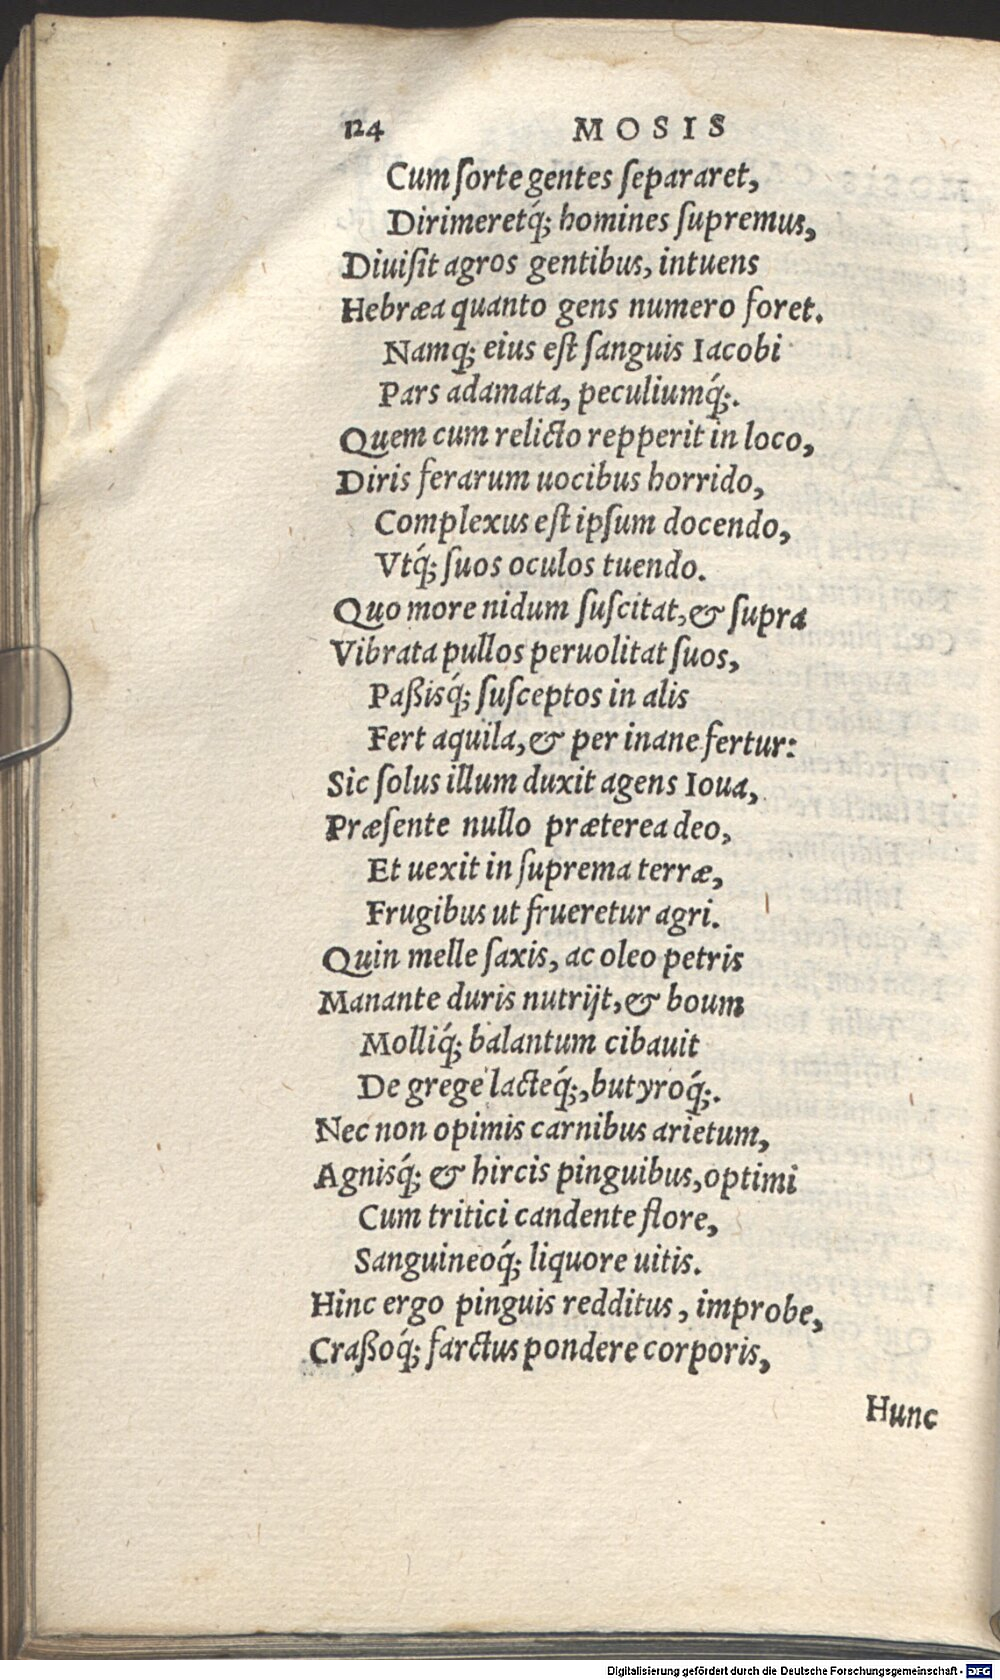 124 MOSIS
Cum ſorte gentes ſepararet,
Dirimeretq́; homines ſupremus,
Diuiſit agros gentibus, intuens
Hebræa quanto gens numero foret.
Namq; eius eſt ſanguis Iacobi
Pars adamata, peculiumq́;.
Quem cum relicto repperit in loco,
Diris ferarum uocibus horrido,
Complexus eſt ipſum docendo,
Vtq́; ſuos oculos tuendo.
Quo more nidum ſuſcitat, & ſupra
Vibrata pullos peruolitat ſuos,
Paßisq́; ſuſceptos in alis
Fert aquila, & per inane fertur:
Sic ſolus illum duxit agens Ioua,
Præſente nullo præterea deo,
Et uexit in ſuprema terræ,
Frugibus ut frueretur agri.
Quin melle ſaxis, ac oleo petris
Manante duris nutrijt, & boum
Molliq́; balantum cibauit
De grege lacteq́;, butyroq́;.
Nec non opimis carnibus arietum,
Agnisq́; & hircis pinguibus, optimi
Cum tritici candente flore,
Sanguineoq́; liquore uitis.
Hinc ergo pinguis redditus, improbe,
Craßoq́; farctus pondere corporis,
Hunc
Digitalisierung gefördert durch die Deutsche Forschungsgemeinschaft - DFG